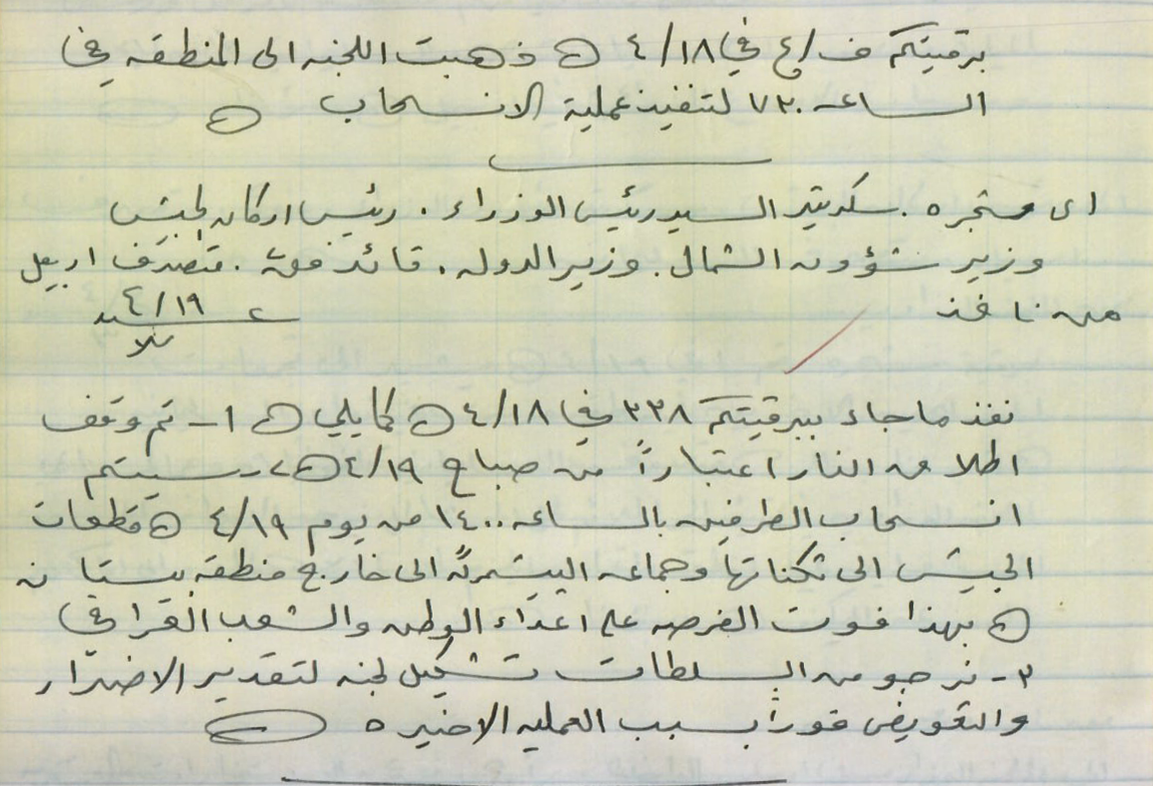 برقيتكم ف/ع في ٤/١٨ ذهبت اللجنه الى المنطقه في
الساعه ٧٣٠ لتنفيذ عملية الانسحاب
سكرتير السيد رئيس الوزراء . رئيس اركان الجيش
وزير شؤون الشمال . وزير الدوله . قائد فق٢ . متصرف اربيل
من نافذ
٤/١٩
نفذ ماجاء ببرقيتكم ٣٣٨ في ٤/١٨ كما يلي ١- تم وقف
اطلاق النار اعتباراً من صباح ٤/١٩ وسيتم
انسحاب الطرفين بالساعه ١٤٠٠ من يوم ٤/١٩ قطعات
الجيش الى ثكناتها وجماعه البيشمركه الى خارج منطقه بيستانه
بهذا فوت الفرصه على اعداء الوطن والشعب العراقي
٢- نرجو من السلطات تشكيل لجنه لتقدير الاضرار
والتعويض فوراً بسبب العمليه الاخيره